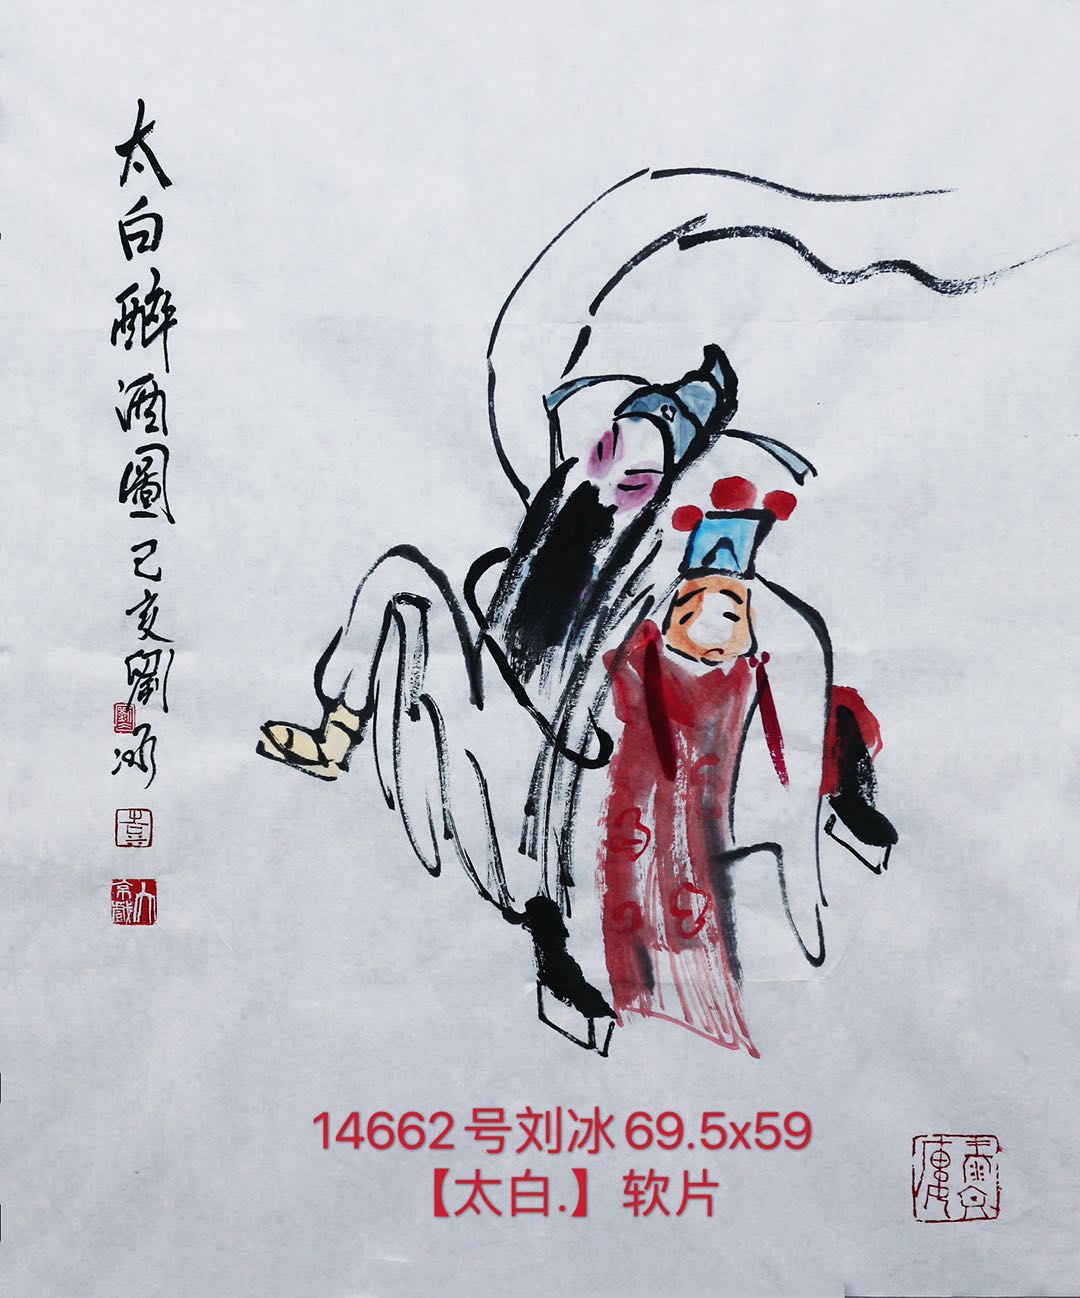 太白醉酒圖己亥劉冰
劉
大京戲
14662号刘冰69.5x59
【太白.】软片